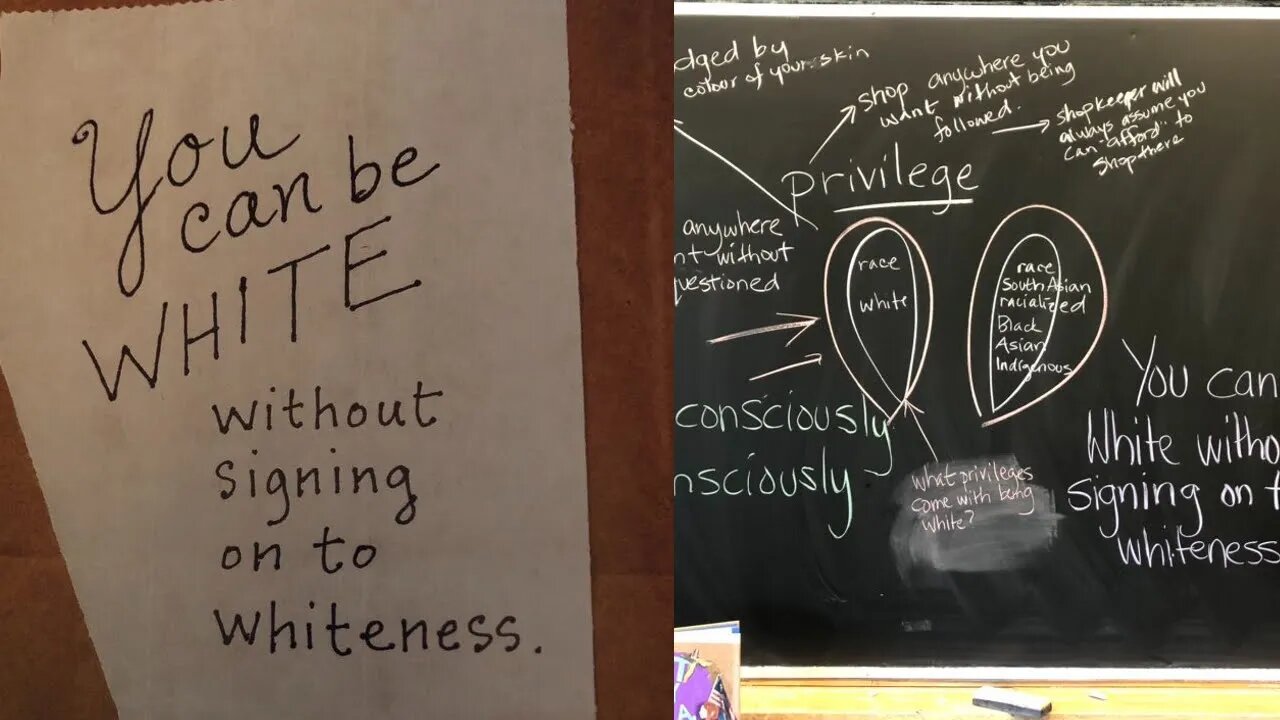 You
can be
WHITE
without
signing
on to
whiteness.
dged by
colour of your skin
shop anywhere you
want without being
followed.
shopkeeper will
always assume you
can "afford" to
shop there
privilege
anywhere
nt without
uestioned
race
white
race
South Asian
racialized
Black
Asian
Indigenous
consciously
nsciously
what privileges
come with being
white?
You can
White witho
signing on t
whiteness